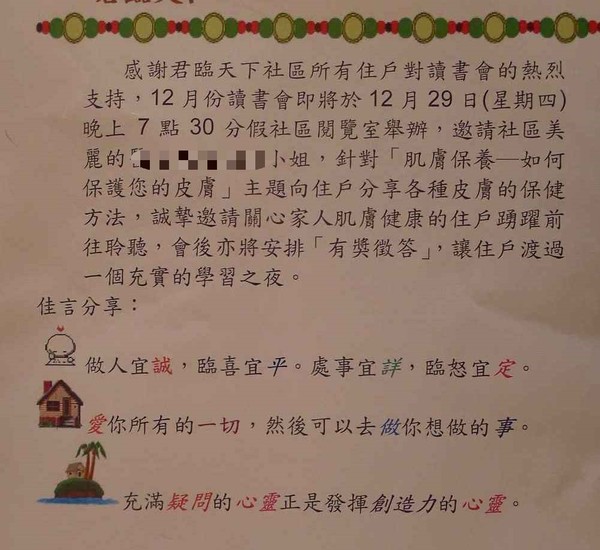 感謝君臨天下社區所有住戶對讀書會的熱烈
支持，12 月份讀書會即將於 12 月 29 日(星期四)
晚上 7 點 30 分假社區閱覽室舉辦，邀請社區美
麗的小姐，針對「肌膚保養—如何
保護您的皮膚」主題向住戶分享各種皮膚的保健
方法，誠摯邀請關心家人肌膚健康的住戶踴躍前
往聆聽，會後亦將安排「有獎徵答」，讓住戶渡過
一個充實的學習之夜。
佳言分享：
做人宜誠，臨喜宜平。處事宜詳，臨怒宜定。
愛你所有的一切，然後可以去做你想做的事。
充滿疑問的心靈正是發揮創造力的心靈。